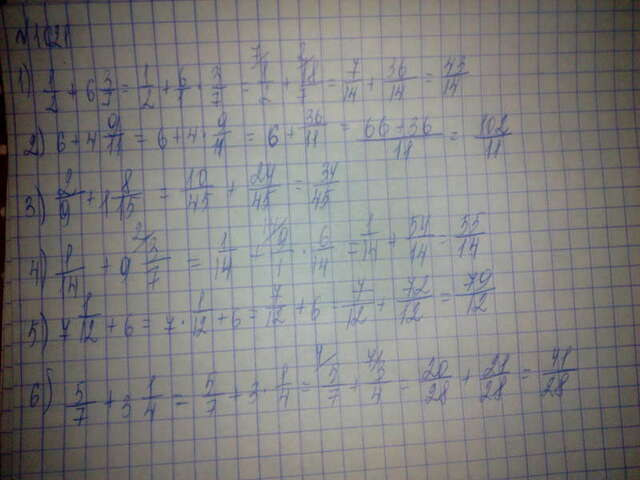 №1028
1) 1/2 + 6 3/7 = 1/2 + 6/1 · 3/7 = 1/2 + 18/7 = 7/14 + 36/14 = 43/14
2) 6 + 4 9/11 = 6 + 4 · 9/11 = 6 + 36/11 = 66+36/11 = 102/11
3) 2/9 + 1 8/15 = 10/45 + 24/45 = 34/45
4) 1/14 + 9 3/7 = 1/14 + 9/1 · 6/14 = 1/14 + 54/14 = 55/14
5) 7 1/12 + 6 = 7 · 1/12 + 6 = 7/12 + 6 = 7/12 + 72/12 = 79/12
6) 5/7 + 3 1/4 = 5/7 + 3 · 1/4 = 5/7 + 3/4 = 20/28 + 21/28 = 41/28